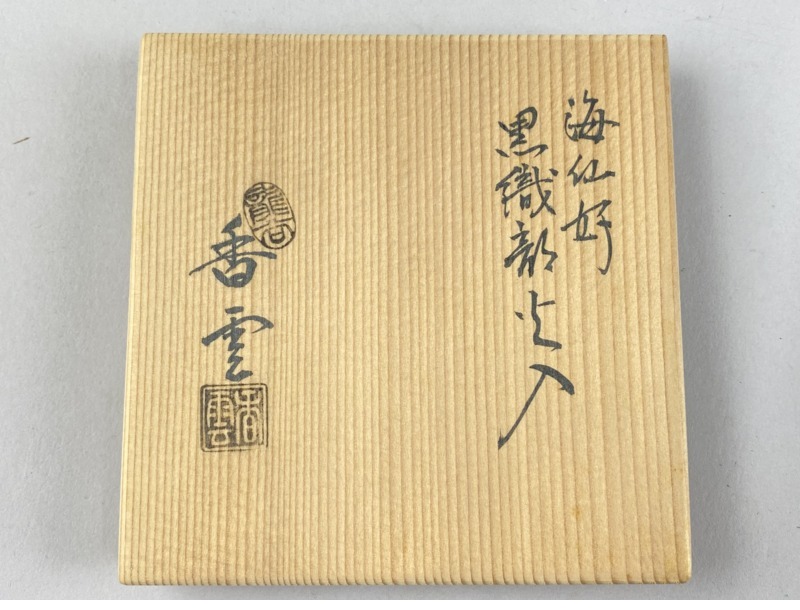 海仙好
黒織部火入
香雲
香雲